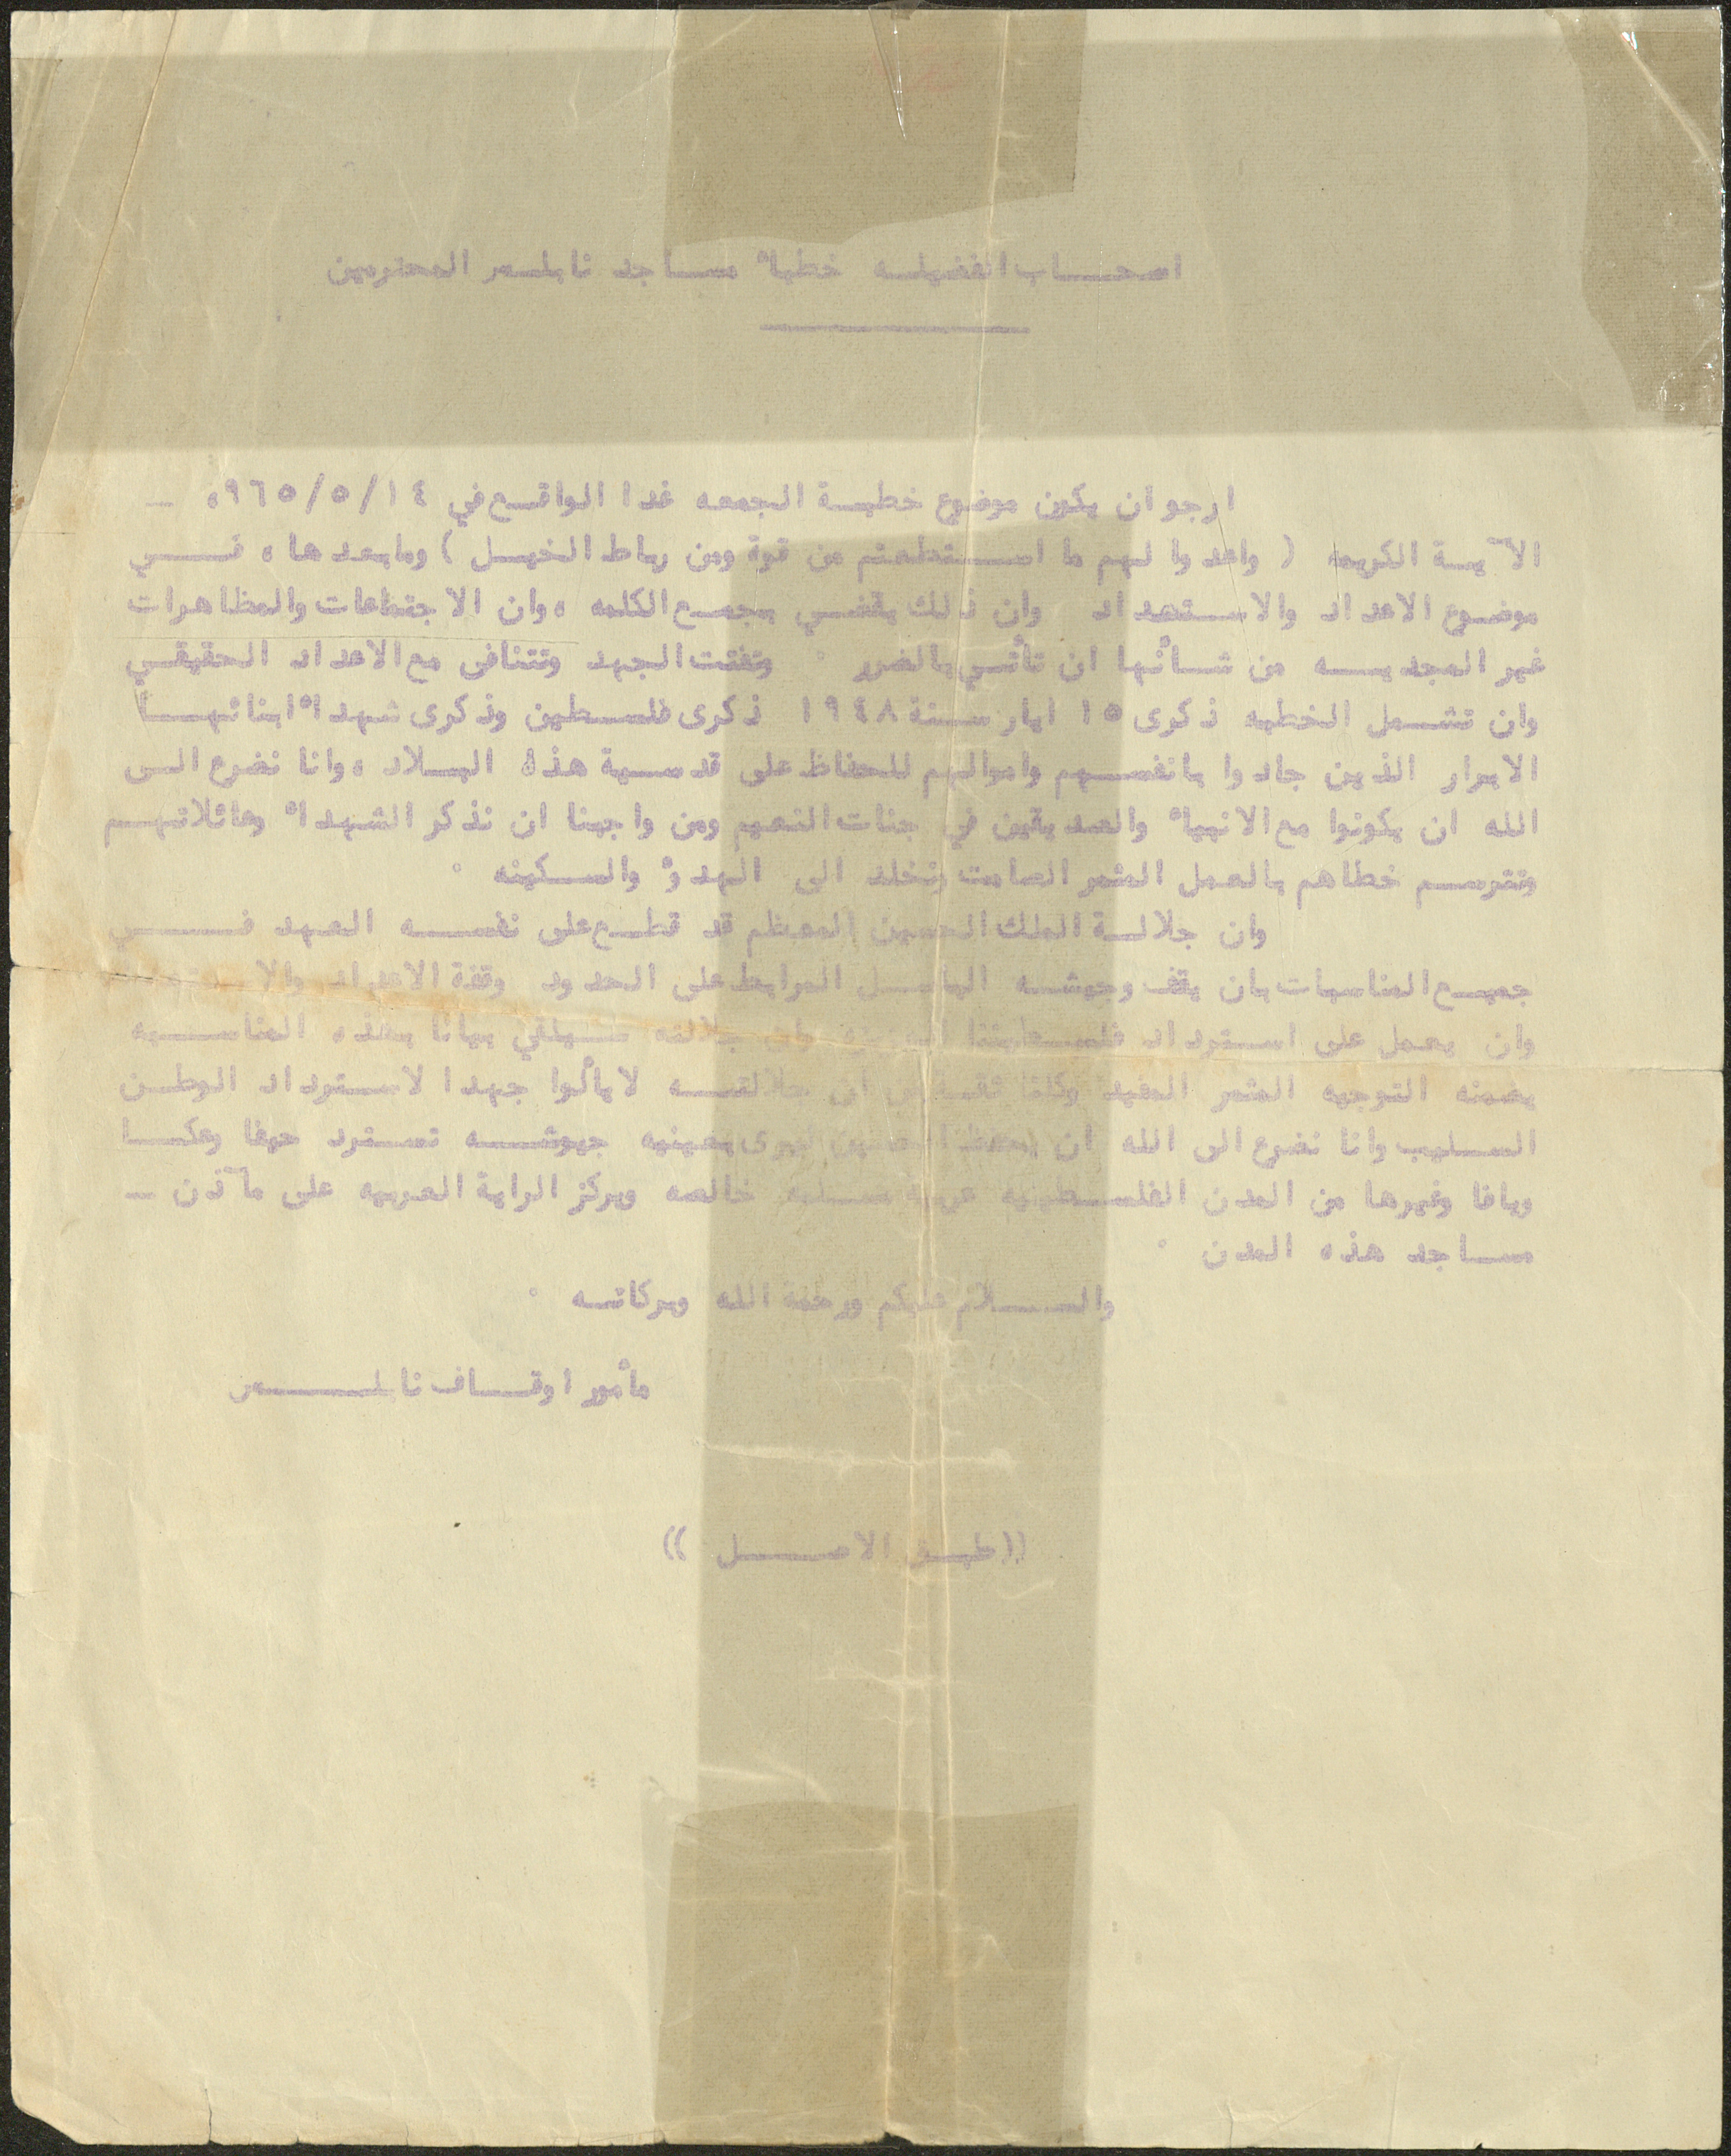 اصحاب الفضيله خطباء مساجد نابلس المحترمين
ارجو ان يكون موضوع خطبة الجمعه غدا الواقع في ١٤/٥/٩٦٥ _
الآية الكريمه ( واعدوا لهم ما استطعتم من قوة ومن رباط الخيل ) ومابعدها ، في
موضوع الاعداد والاستعداد وان ذلك يقضي بجمع الكلمه ، وان الاجتماعات والمظاهرات
غير المجديه من شأنها ان تأتي بالضرر وتفتت الجهد وتتنافى مع الاعداد الحقيقي
وان تشمل الخطبه ذكرى ١٥ ايار سنة ١٩٤٨ ذكرى فلسطين وذكرى شهداء ابنائها
الابرار الذين جادوا بانفسهم واموالهم للحفاظ على قدسية هذه البلاد ، وانا نضرع الى
الله ان يكونوا مع الانبياء والصديقين في جنات النعيم ومن واجبنا ان نذكر الشهداء وعائلاتهم
وتترسم خطاهم بالعمل المثمر الصامت وتخلد الى الهدوء والسكينه .
وان جلالة الملك الحسين المعظم قد قطع على نفسه العهد في
جميع المناسبات بان يقف وجيشه الباسل المرابط على الحدود وقفة الاعداد
وان يعمل على استرداد فلسطيننا وان جلالته سيلقي بيانا بهذه المناسبه
يضمنه التوجيه المثمر المفيد وكلنا ثقة ان جلالته لا يألوا جهدا لاسترداد الوطن
السليب وانا نضرع الى الله ان يحفظ الحسين ليرى بعينيه جيوشه تسترد حيفا وعكا
ويافا وغيرها من المدن الفلسطينيه عربية خالصه ويركز الراية العربيه على مآذن _
مساجد هذه المدن .
والسلام عليكم ورحمة الله وبركاته .
مأمور اوقاف نابلس
(( طبق الاصل ))